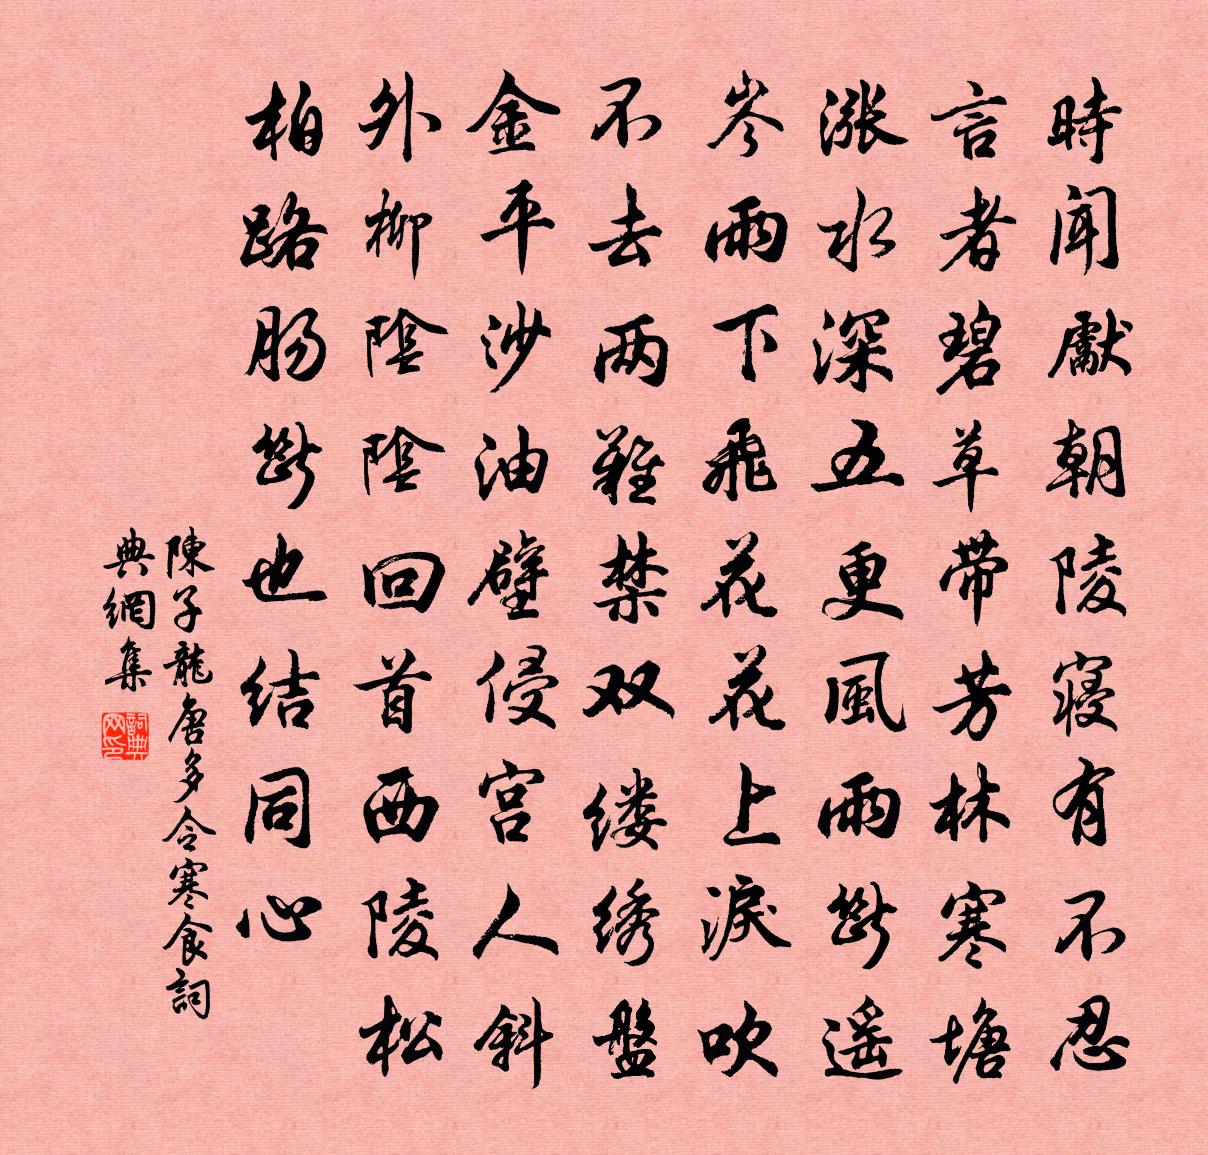 時闻獻朝陵寢有不忍
言者碧草带芳林寒塘
漲水深五更風雨斷遥
岑雨下飛花花上淚吹
不去两難禁双缕绣盤
金平沙油壁侵宫人斜
外柳陰陰回首西陵松
柏路肠斷也结同心
陳子龍唐多令寒食詞
典網集
詞典网印